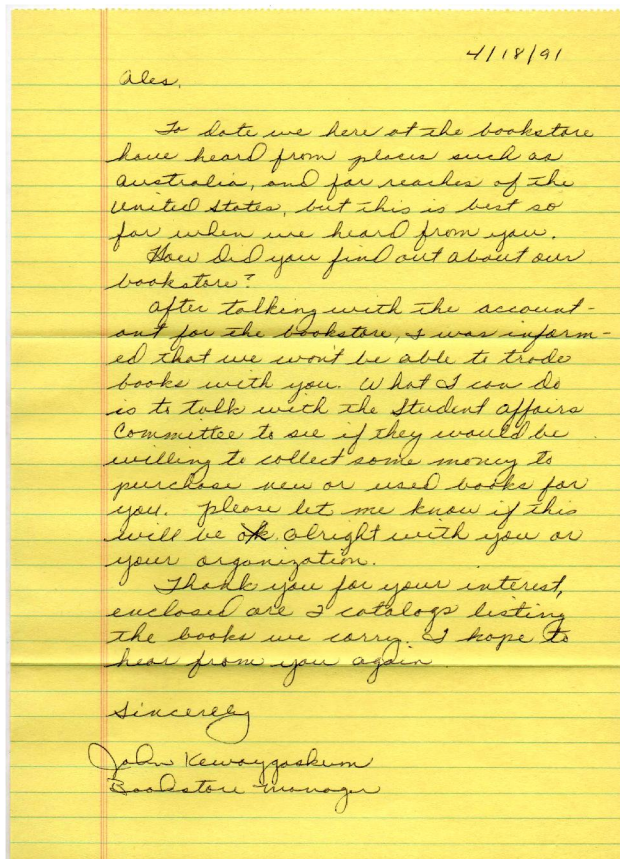 4/18/91
Ales,
To date we here at the bookstore
have heard from places such as
Australia, and far reaches of the
United States, but this is best so
far when we heard from you.
How did you find out about our
bookstore?
After talking with the account-
ant for the bookstore, I was inform-
ed that we won't be able to trade
books with you. What I can do
is to talk with the Student Affairs
Committee to see if they would be
willing to collect some money to
purchase new or used books for
you. Please let me know if this
will be ok alright with you or
your organization.
Thank you for your interest,
enclosed are 2 catalogs listing
the books we carry. I hope to
hear from you again.
Sincerely
John Kewaygoshkum
Bookstore Manager